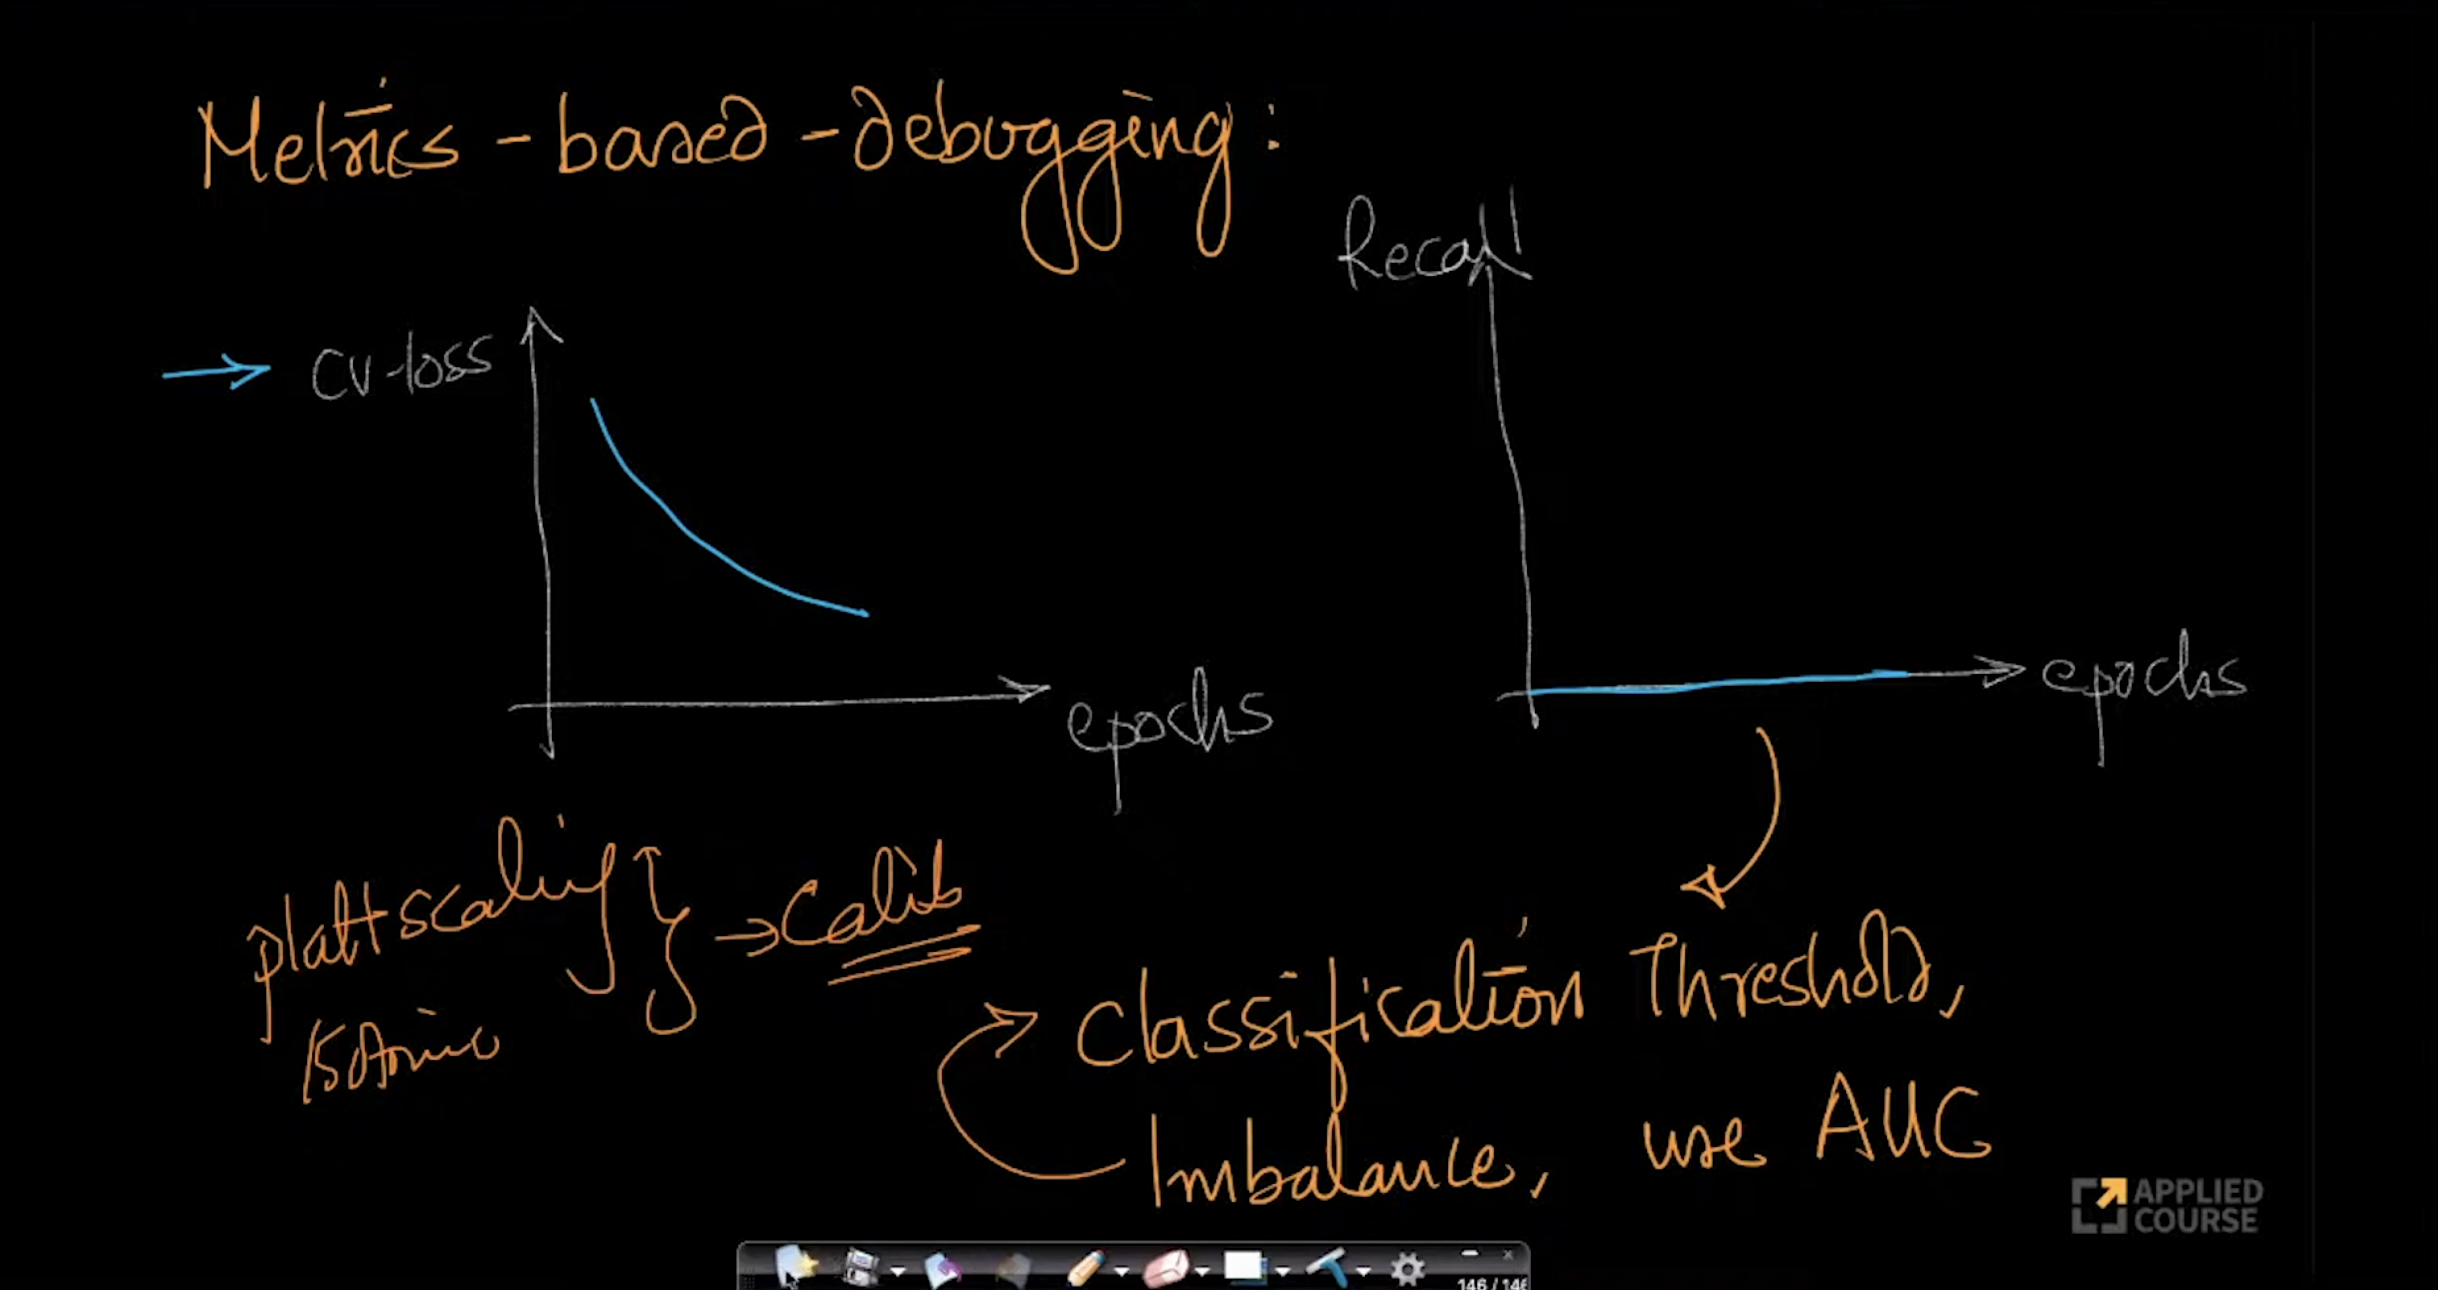 Metrics - based - debugging:
Recall
CV-loss
epochs
epochs
platt scaling
→ Calib
Isotonic
Classification Threshold,
Imbalance, use AUC
APPLIED
COURSE
146 / 146